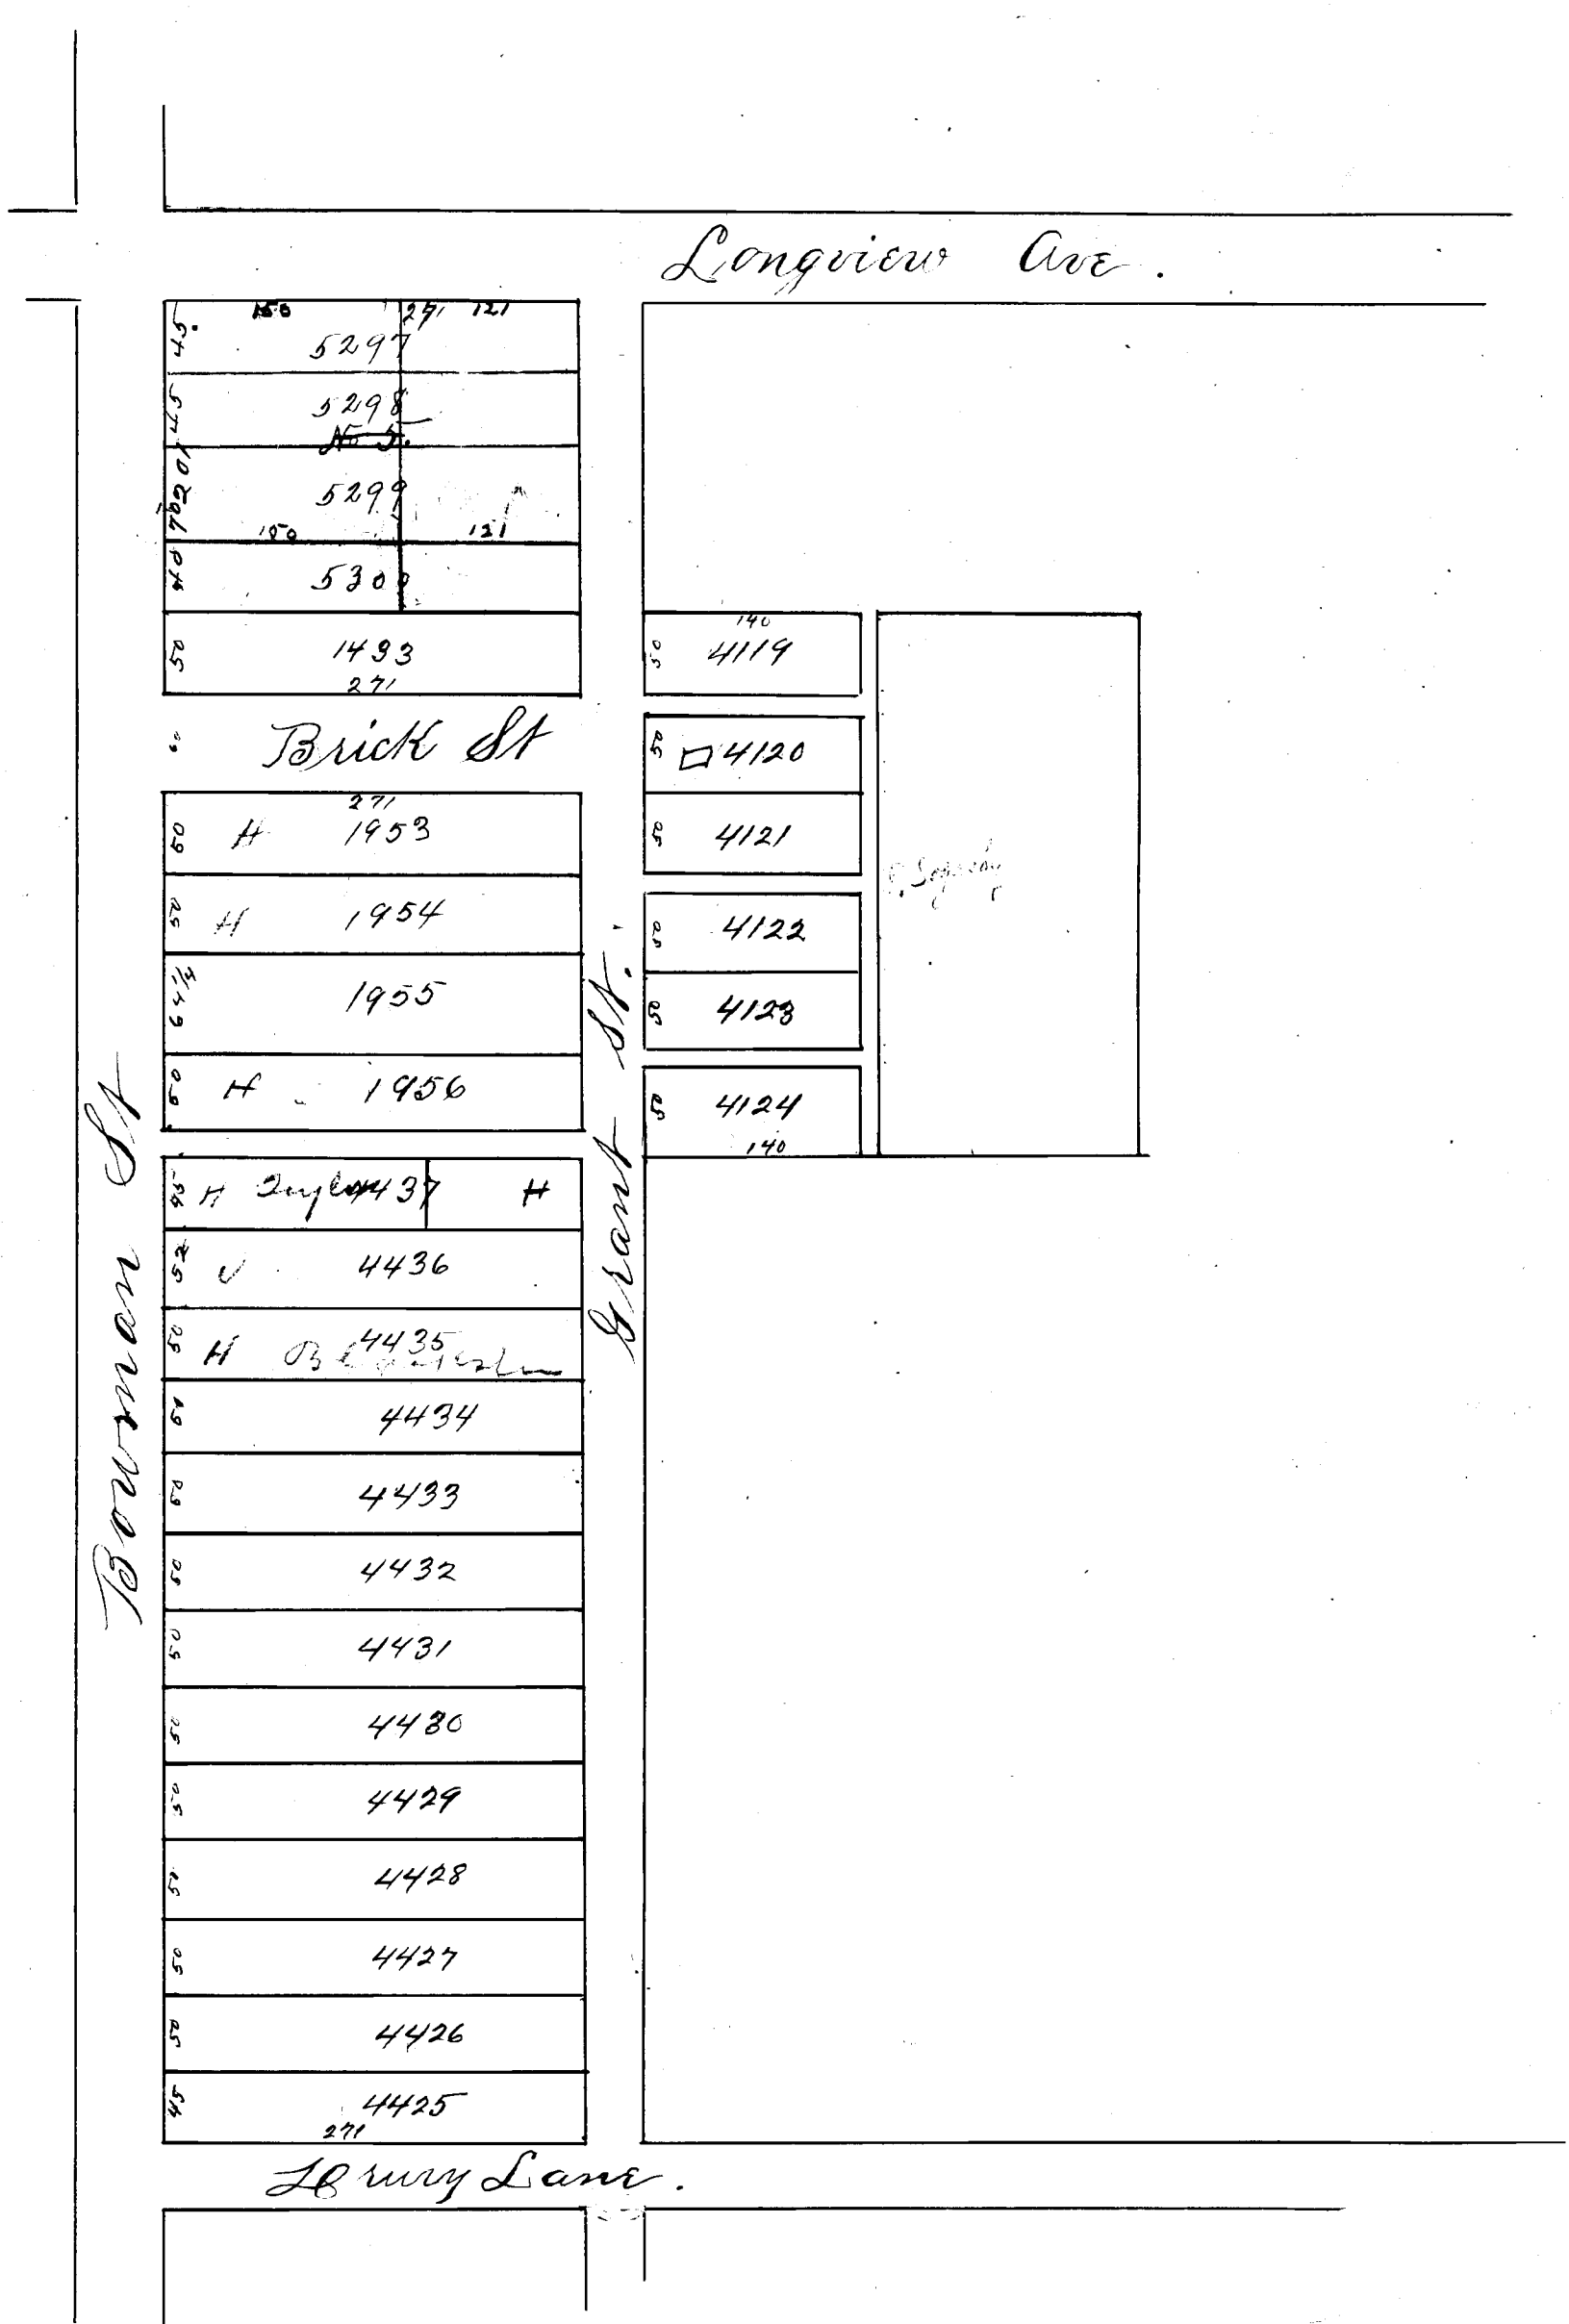 Longview Ave.
150 271 121
45 5297
45 5298
No 5.
5299
150 121
40 5300
50 1433
271
Brick St
60
271
50 H 1953
50 H 1954
64 1/2 1955
50 H 1956
45 H 4437 H
52 4436
50 H 4435
50 4434
50 4433
50 4432
50 4431
50 4430
50 4429
50 4428
50 4427
50 4426
45 4425
271
Drury Lane.
Bowman St
Grant St.
140
50 4119
50 4120
50 4121
50 4122
50 4123
50 4124
140